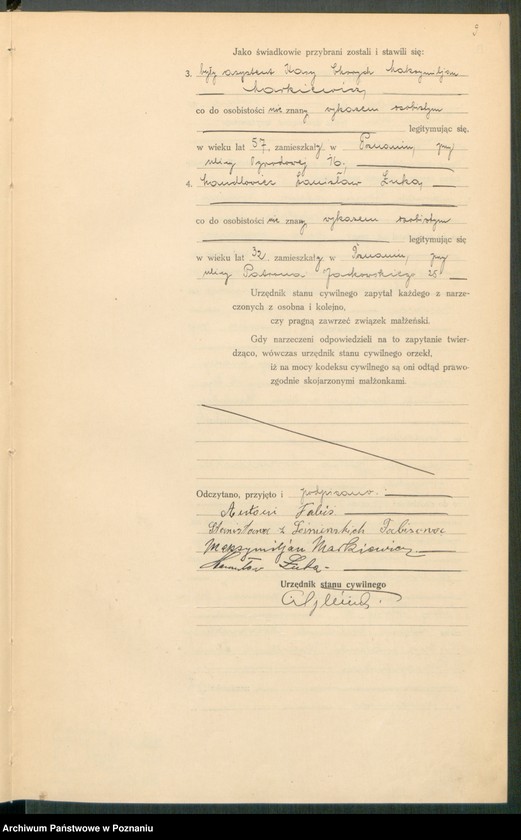 Jako świadkowie przybrani zostali i stawili się:
3. były asystent Kasy Chorych Maksymiljan
Markiewicz,
co do osobistości nie znany wykazem osobistym
legitymując się.
w wieku lat 57, zamieszkały w Poznaniu, przy
ulicy 16.
4. handlowiec Stanisław Łuka,
co do osobistości nie znany wykazem osobistym
legitymując się
w wieku lat 32, zamieszkały w Poznaniu, przy
ulicy Patrona Jackowskiego 25
Urzędnik stanu cywilnego zapytał każdego z narze-
czonych z osobna i kolejno,
czy pragną zawrzeć związek małżeński.
Gdy narzeczeni odpowiedzieli na to zapytanie twier-
dząco, wówczas urzędnik stanu cywilnego orzekł,
iż na mocy kodeksu cywilnego są oni odtąd prawo-
zgodnie skojarzonymi małżonkami.
Odczytano, przyjęto i podpisano.
Antoni Fabiś
Stanisława z Fabisiowa
Maksymiljan Markiewicz
Stanisław Łuka
Urzędnik stanu cywilnego
Archiwum Państwowe w Poznaniu